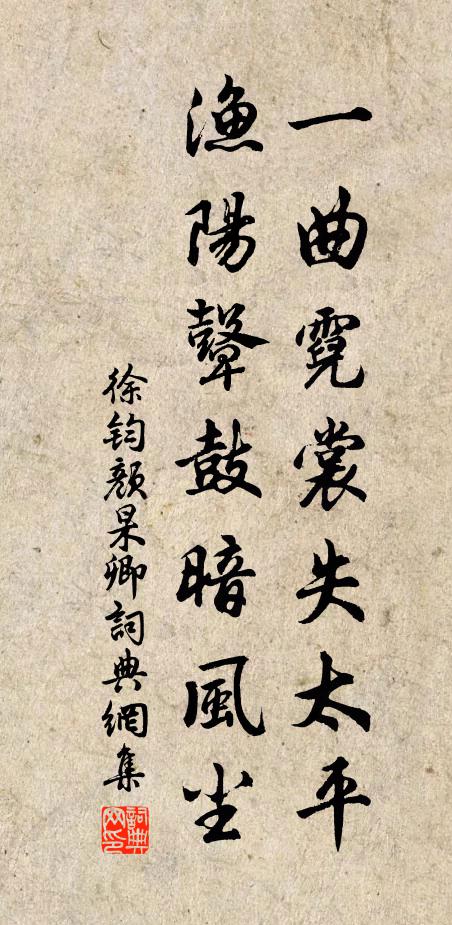 一曲霓裳失太平
漁陽鼙鼓暗風尘
徐钧顏杲卿詞典網集
詞典网印